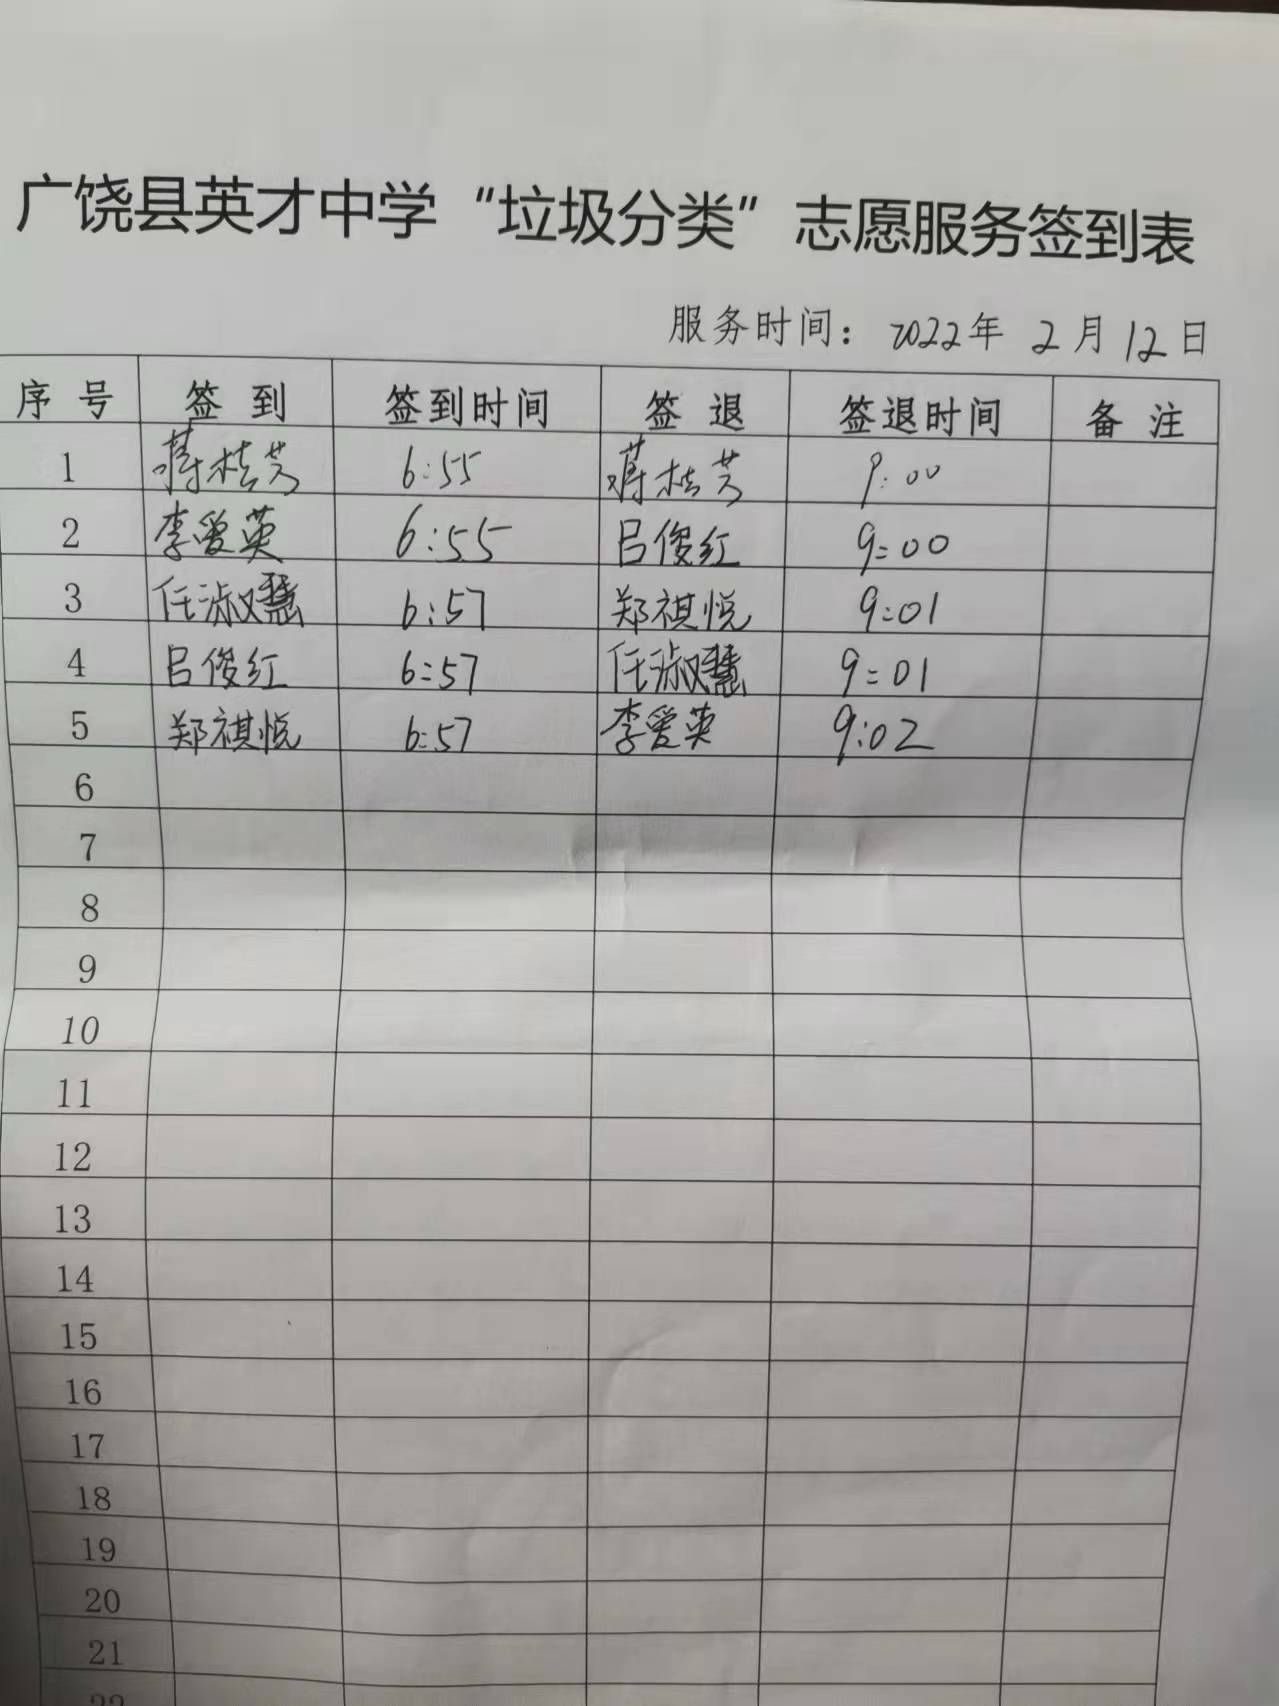 广饶县英才中学“垃圾分类”志愿服务签到表
服务时间：2022年 2月12日
序号 签到 签到时间 签退 签退时间 备注
1 蒋桂芳 6:55 蒋桂芳 9:00
2 李爱英 6:55 吕俊红 9:00
3 任淑慧 6:57 郑祺悦 9:01
4 吕俊红 6:57 任淑慧 9:01
5 郑祺悦 6:57 李爱英 9:02
6
7
8
9
10
11
12
13
14
15
16
17
18
19
20
21
22